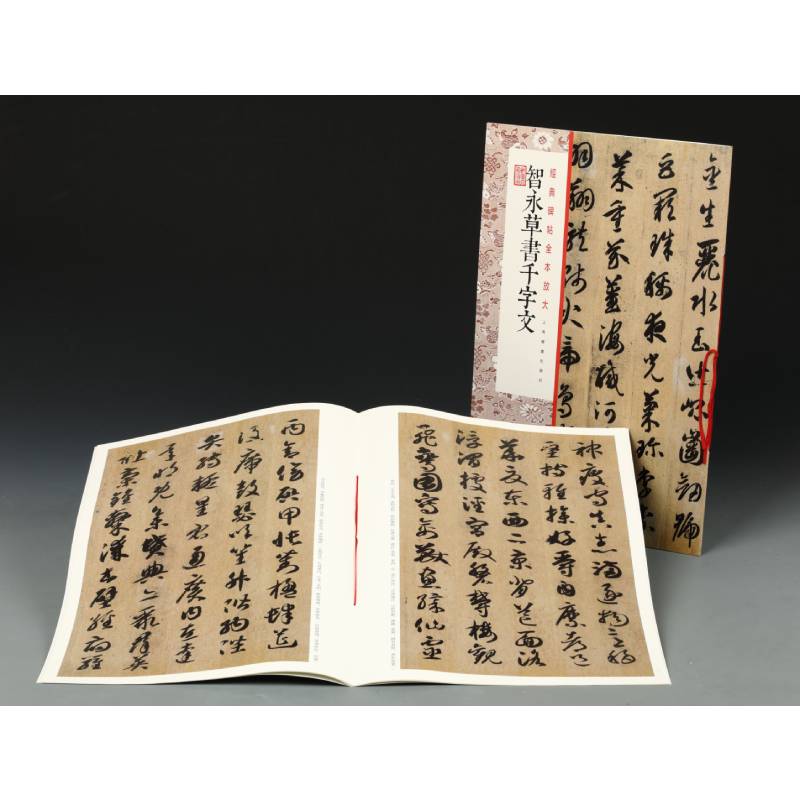 經典碑帖全本放大
智永草書千字文
上海書畫出版社
金生麗水玉出崑崗劍號
巨闕珠稱夜光菓珍李柰
菜重芥薑海鹹河
羽翔龍師火帝鳥
神疲守真志滿逐物意移
堅持雅操好爵自縻都邑
華夏東西二京背芒面洛
浮渭據涇宮殿盤鬱樓觀
飛驚圖寫禽獸畫綵仙靈
丙舍傍啓甲帳對楹肆筵
設席鼓瑟吹笙升階納陛
弁轉疑星右通廣內左達
承明既集墳典亦聚群英
杜稾鍾隸漆書壁經府羅